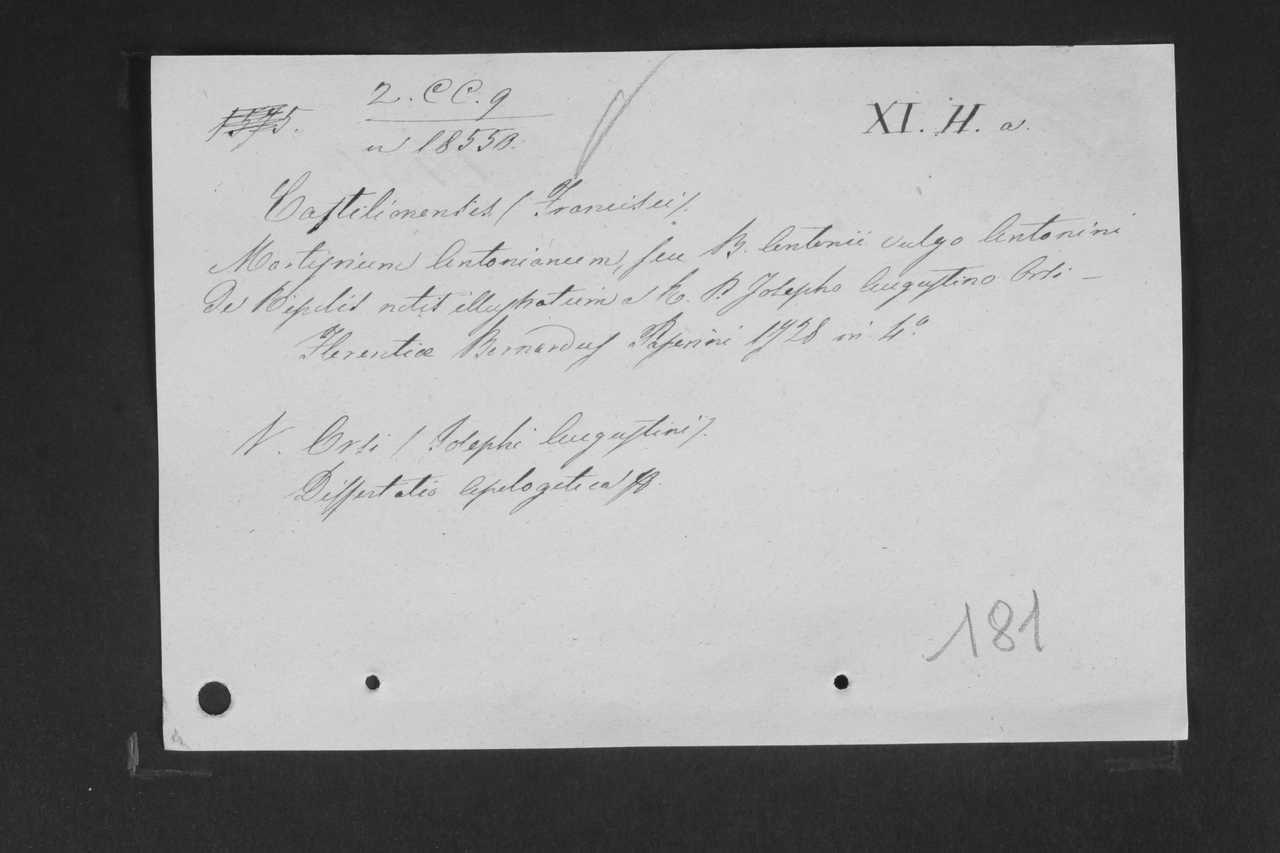 2. CC. 9
1575.
n 18550.
XI. H. a.
Castilionensis / Francisci /.
Martyrium Antonianum, seu B. Antonii vulgo Antonini
De Ripolis notis illustratum a R. P. Josepho Augustino Orsi —
Florentiæ Bernardus Paperini 1728 in 4.º
V. Orsi / Josephi Augustini /.
Dissertatio Apologetica
181